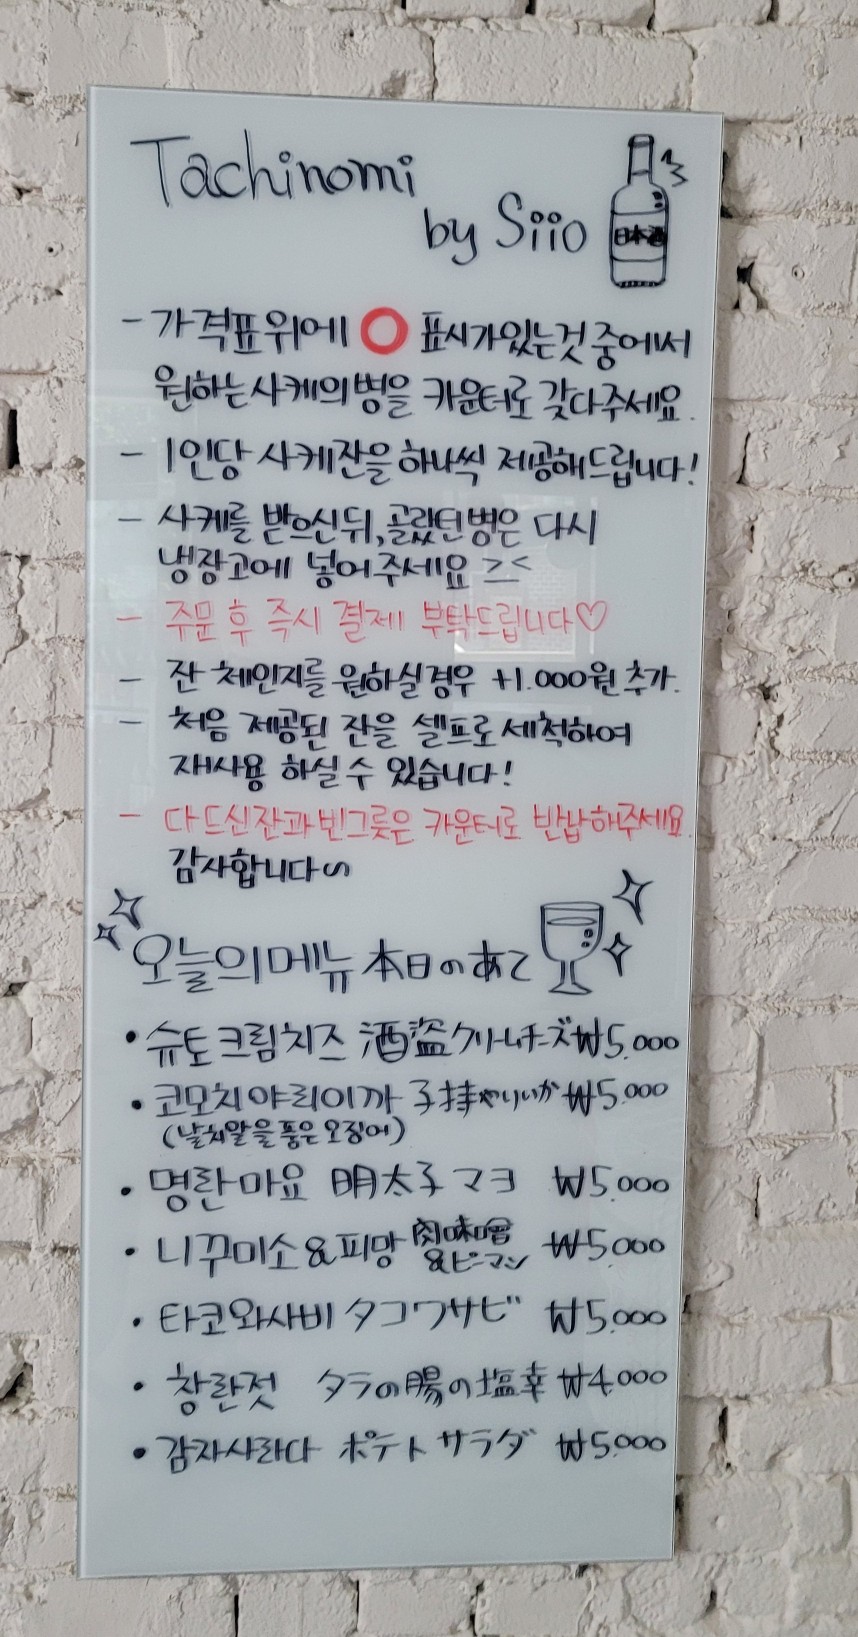 Tachinomi
by Siio
日本酒
- 가격표 위에 ⭕ 표시가 있는것 중에서
원하는 사케의 병을 카운터로 갖다주세요.
- 1인당 사케잔을 하나씩 제공해드립니다!
- 사케를 받으신 뒤, 골랐던 병은 다시
냉장고에 넣어주세요 ><
- 주문 후 즉시 결제 부탁드립니다♡
- 잔 체인지를 원하실 경우 +1.000원 추가.
- 처음 제공된 잔을 셀프로 세척하여
재사용 하실 수 있습니다!
- 다 드신 잔과 빈그릇은 카운터로 반납해주세요.
감사합니다~
오늘의 메뉴 本日のあて
• 슈토 크림치즈 酒盗クリームチーズ ₩5.000
• 코모치 야리이까 子持やりいか ₩5.000
(날치알을 품은 오징어)
• 명란마요 明太子マヨ ₩5.000
• 니꾸미소&피망 肉味噌&ピーマン ₩5.000
• 타코와사비 タコワサビ ₩5.000
• 창란젓 タラの腸の塩辛 ₩4.000
• 감자사라다 ポテトサラダ ₩5.000